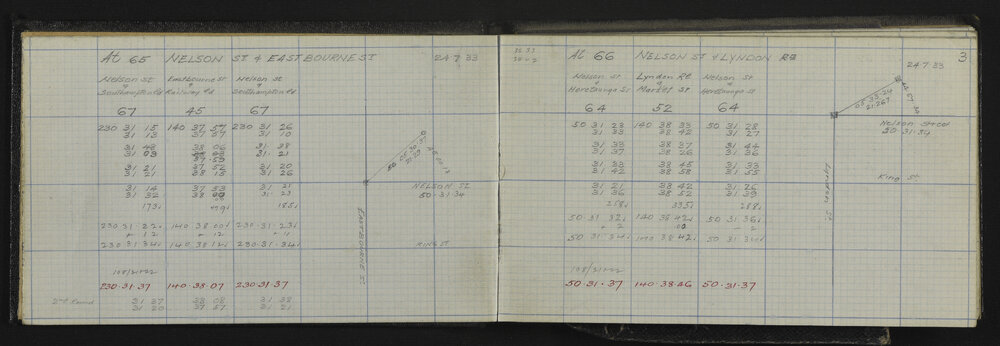 At 65 NELSON ST & EASTBOURNE ST 24.7.33
Nelson St Eastbourne St Nelson St
& & &
Southampton Rd Railway Rd Southampton Rd
67 45 67
230 31 15 140 37 230 31 26
31 13 37 31 10
31 38 06 31
31 31 21
37 59
31 21 37 52 31 20
31 21 38 15 31 26
31 14 37 53 31 21
31 32 38 31 23
173 185
230 31 22 140 38 00 230 31 23
+ 12 + 12 + 11
230 31 34 140 38 12 230 31 34
230.31.37 140.38.07 230.31.37
2nd Round 31 37 38 08 31 38
31 20 37 57 31 21
NELSON ST
50.31.34
EASTBOURNE ST
KING ST
At 66 NELSON ST & LYNDON RD 3
24 7 33
Nelson St Lyndon Rd Nelson St
& & &
Heretaunga St Market St Heretaunga St
64 52 64
50 31 23 140 38 33 50 31 28
31 33 38 42 31 27
31 33 38 37 31 44
31 37 38 26 31 36
31 33 38 45 31 33
31 42 38 58 31 55
31 21 38 42 31 26
31 36 38 52 31 39
258 335 288
50 31 32 140 38 42 50 31 36
+ 2 00 - 2
50 31 34 140 38 42 50 31 34
50.31.37 140.38.46 50.31.37
Nelson St
50.31.34
King St
Lyndon St